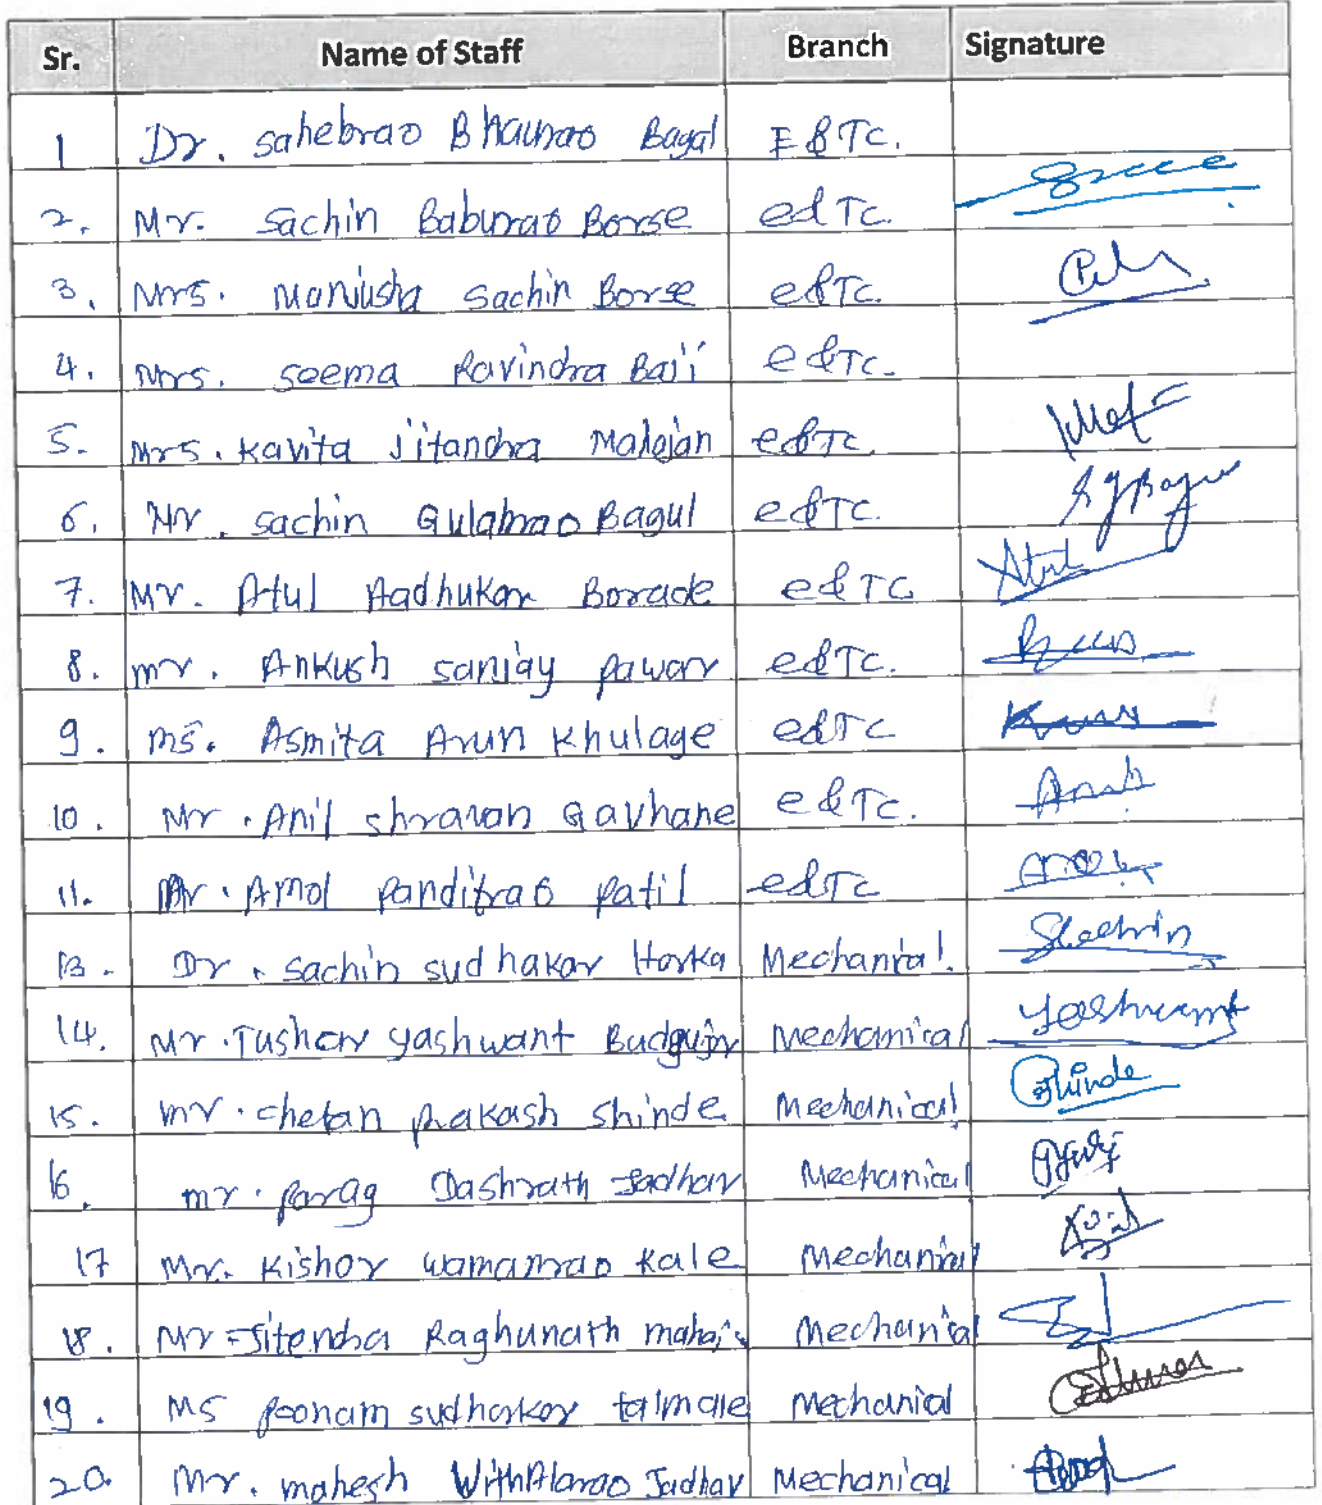 Sr. Name of Staff Branch Signature
1 Dr. Sahebrao Bhaurao Bagal E&TC.
2. Mr. Sachin Baburao Borse e&TC.
3. Mrs. Manjusha Sachin Borse e&TC.
4. Mrs. Seema Ravindra Baji e&TC.
5. Mrs. Kavita Jitandra Mahajan e&TC.
6. Mr. Sachin Gulabrao Bagul e&TC. SGBagul
7. Mr. Atul Madhukar Borade e&TC Atul
8. mr. Ankush sanjay pawar e&TC.
9. ms. Asmita Arun Khulage e&TC
10. Mr. Anil shravan Gavhane e&TC.
11. Mr. Amol panditrao patil e&TC
13. Dr. sachin sudhakar Mechanical. Sachin
14. Mr. Tushar yashwant Budgujar Mechanical Yashwant
15. mr. chetan prakash shinde Mechanical Shinde
16. mr. parag Dashrath Jadhav Mechanical
17 Mr. Kishor wamanrao Kale Mechanical
18. Mr. Jitendra Raghunath Mechanical
19. Ms poonam sudhakar talmale Mechanial
20. Mr. mahesh Withalarao Jadhav Mechanical